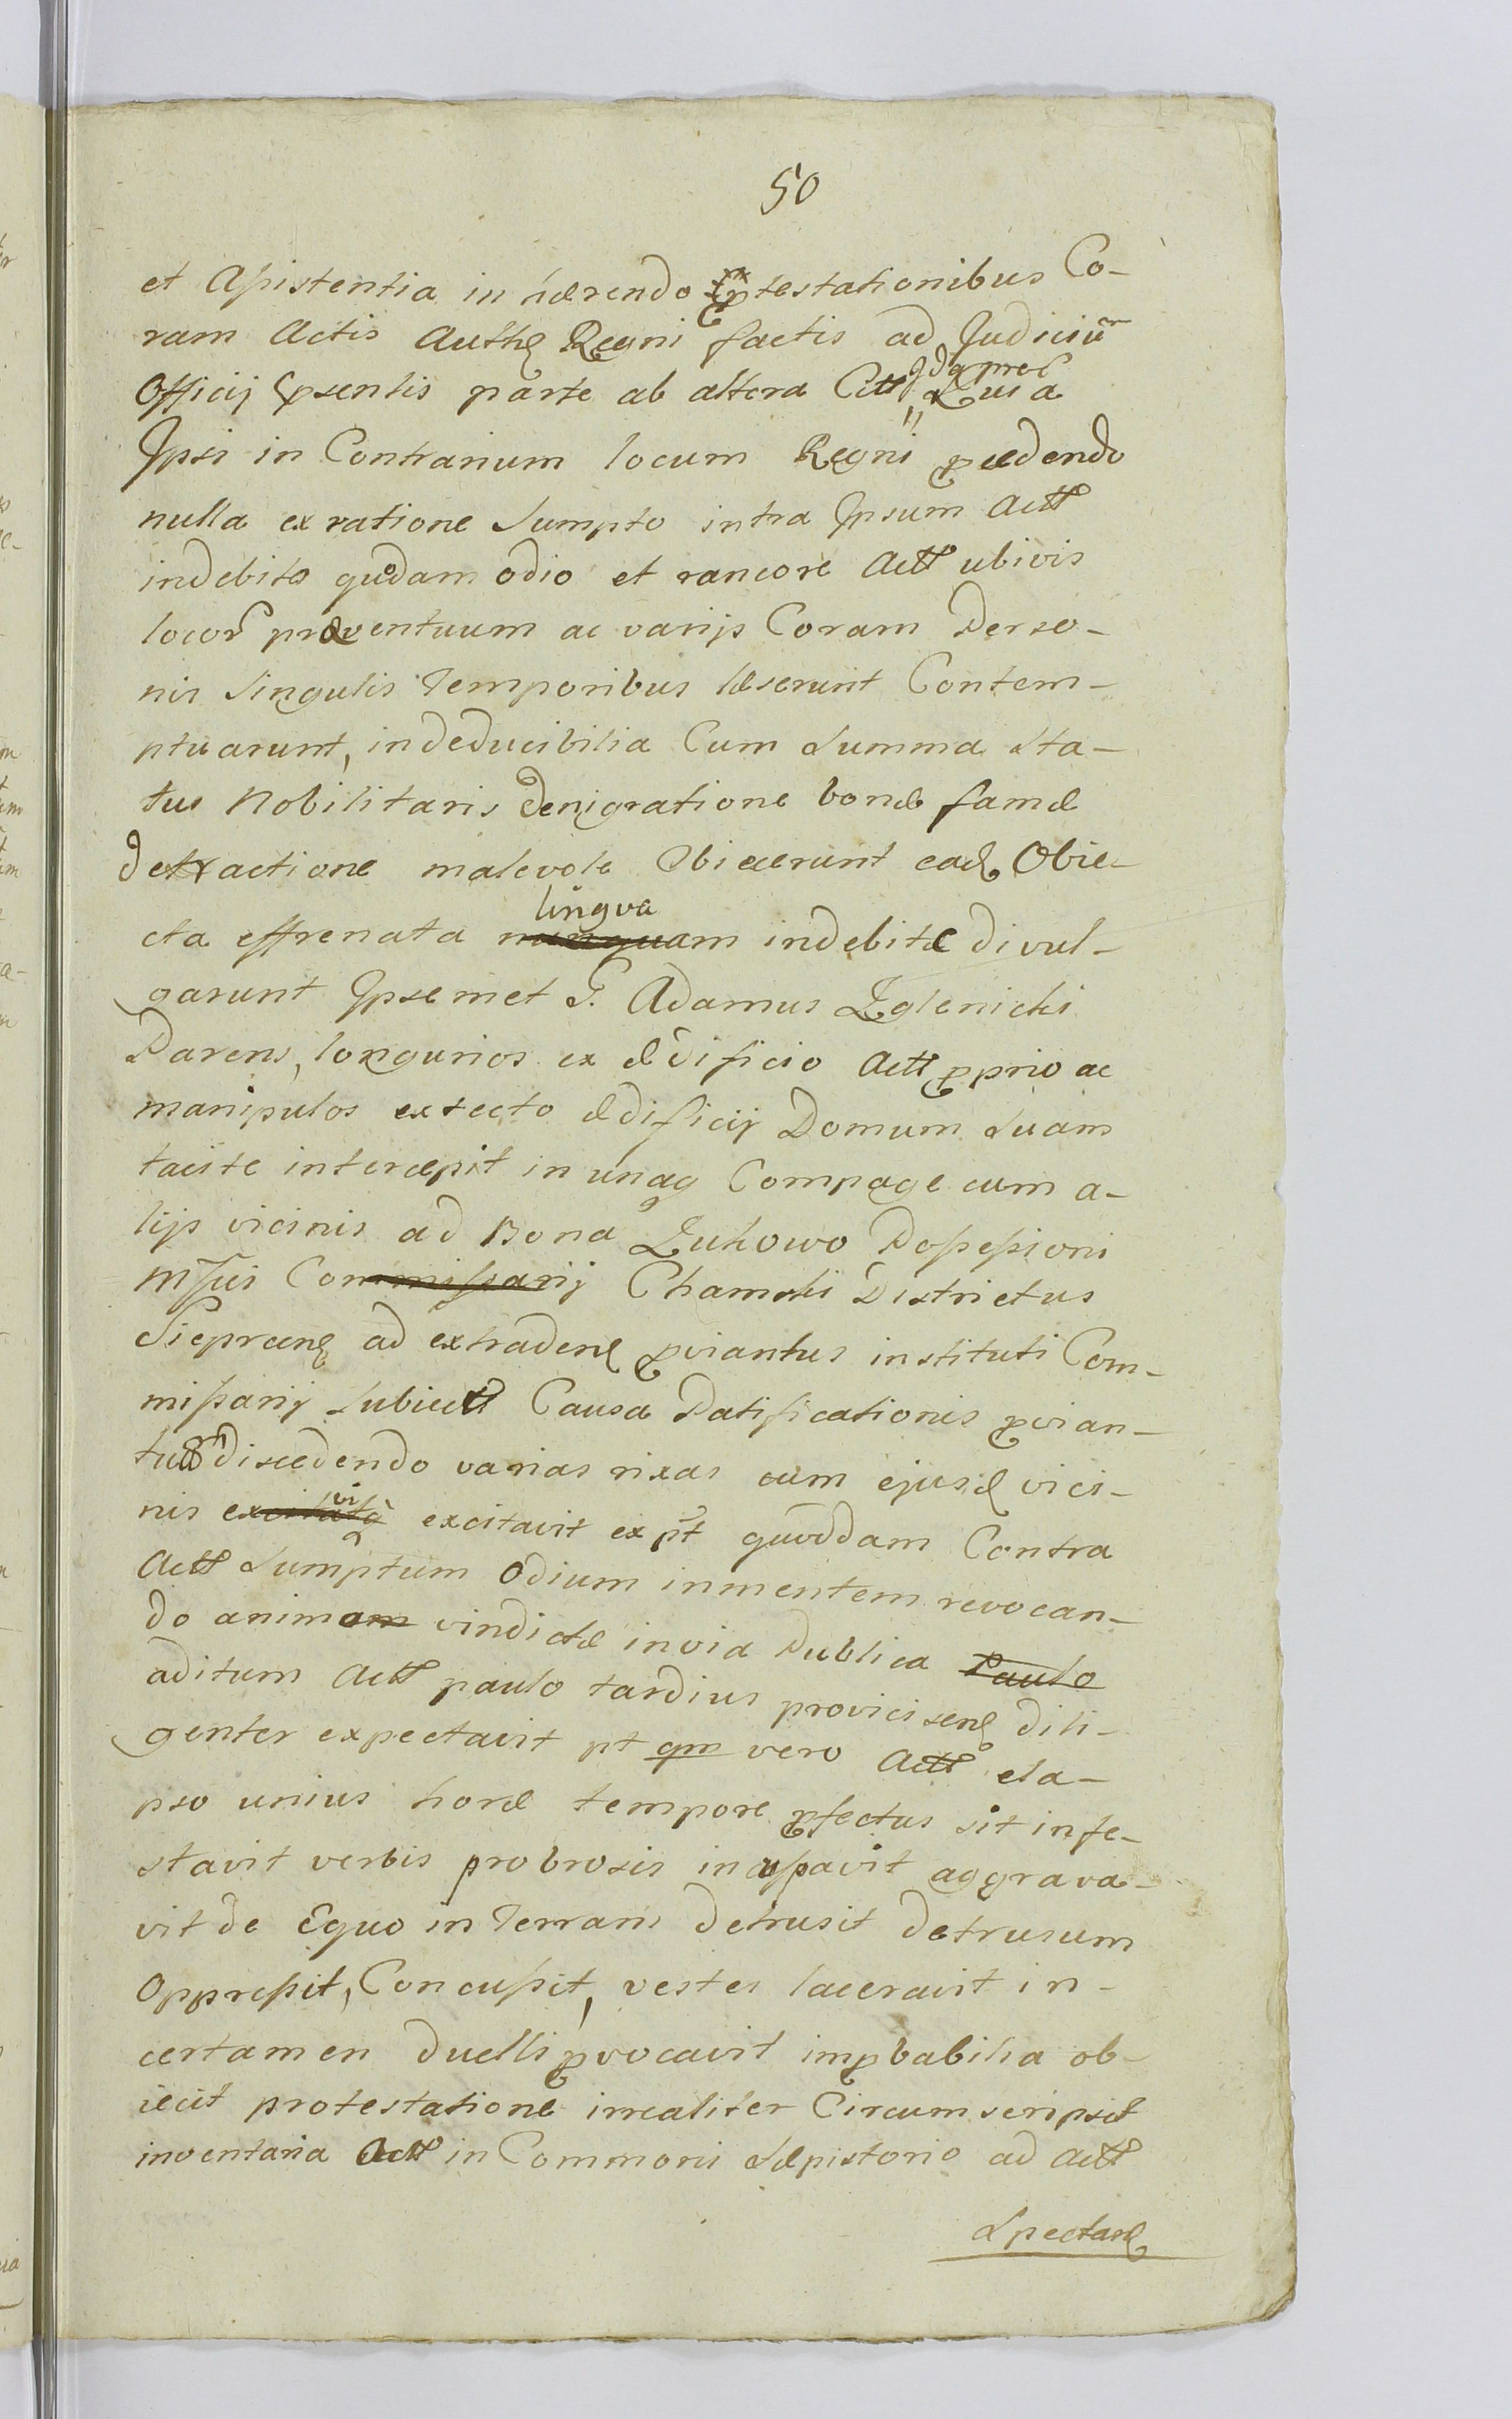 50
et Assistentia in hærendo ptestationibus Co-
ram Actis Auth Regni factis ad Judiciū
Officij psentis parte ab altera Citt Idq prec Quia
Ipsi in Contrarium locum Regni pcedendo
nulla ex ratione Sumpto intra Ipsum Actt
indebito quodam odio et rancore Actt ubivis
locor proventuum ac varijs Coram Perso-
nis Singulis Temporibus læserunt Contem-
ptuarunt, indeducibilia Cum Summa Sta-
tus Nobilitaris denigratione bonæ famæ
detractione malevole Obiecerunt ead Obie-
cta effrenata lingua nunquam indebite divul-
garunt Ipsemet G. Adamus Zglenicki
Parens, longurios ex ædificio Actt pprio ac
manipulos ex tecto ædificij Domum Suam
tacite intercæpit in unaq Compage cum a-
lijs vicinis ad Bona Zukowo Possessioni
Commissarij Chamski Districtus
Sieprcen ad extraden pviantus instituti Com-
missarij Subiectt Causa Ratificationis pvian-
tus discedendo varias rixas cum ejusd vici-
nis excitavit ex pt quoddam Contra
Actt Sumptum Odium in mentem revocan-
do animam vindictæ in via Publica Paulo
aditum Actt paulo tardius provicisen dili-
genter expectavit pt qm vero Actt ela-
pso unius horæ tempore pfectus sit infe-
stavit verbis probrosis incusavit aggrava-
vit de Equo in Terram detrusit detrusum
Oppressit, Concussit, vestes laceravit in-
certamen duelli pvocavit impbabilia ob-
iecit protestatione irrealiter Circumscripsit
inventaria Actt in Commoni Sæpistorio ad Actt
Spectan